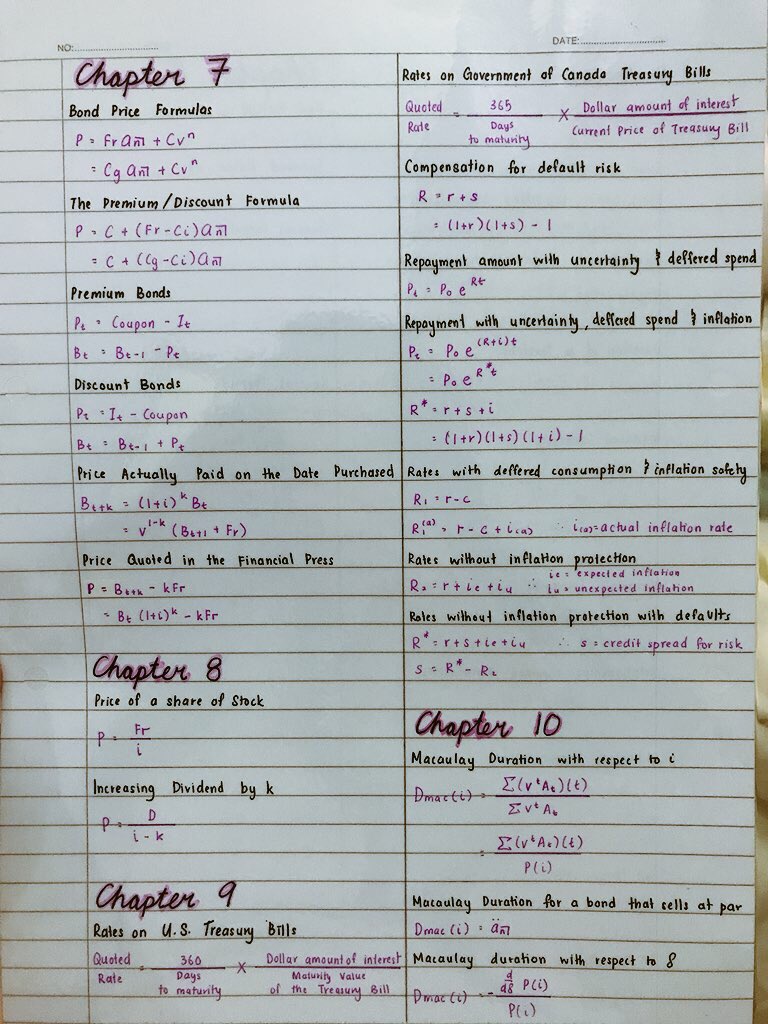 NO:
DATE:
Chapter 7
Bond Price Formulas
P = Fr a n̅| + Cvⁿ
= Cg a n̅| + Cvⁿ
The Premium/Discount Formula
P = C + (Fr - Ci) a n̅|
= C + (Cg - Ci) a n̅|
Premium Bonds
Pt = Coupon - It
Bt = Bt-1 - Pt
Discount Bonds
Pt = It - Coupon
Bt = Bt-1 + Pt
Price Actually Paid on the Date Purchased
Bt+k = (1+i)^k Bt
= v^1-k (Bt+1 + Fr)
Price Quoted in the Financial Press
P = Bt+k - kFr
= Bt (1+i)^k - kFr
Chapter 8
Price of a share of Stock
P = Fr / i
Increasing Dividend by k
P = D / i - k
Chapter 9
Rates on U.S. Treasury Bills
Quoted Rate = 360 / Days to maturity × Dollar amount of interest / Maturity Value of the Treasury Bill
Rates on Government of Canada Treasury Bills
Quoted Rate = 365 / Days to maturity × Dollar amount of interest / Current Price of Treasury Bill
Compensation for default risk
R = r + s
= (1+r)(1+s) - 1
Repayment amount with uncertainty & deffered spend
Pt = P₀ e^Rt
Repayment with uncertainty, deffered spend & inflation
Pt = P₀ e^(R+i)t
= P₀ e^R*t
R* = r + s + i
= (1+r)(1+s)(1+i) - 1
Rates with deffered consumption & inflation safety
R₁ = r - c
R₁^(a) = r - c + i(a) ∴ i(a) = actual inflation rate
Rates without inflation protection
R₂ = r + ie + iu ∴ ie = expected inflation
iu = unexpected inflation
Rates without inflation protection with defaults
R* = r + s + ie + iu ∴ s = credit spread for risk
s = R* - R₂
Chapter 10
Macaulay Duration with respect to i
Dmac(i) = Σ(v^t At)(t) / Σ v^t At
= Σ(v^t At)(t) / P(i)
Macaulay Duration for a bond that sells at par
Dmac(i) = ä n̅|
Macaulay duration with respect to δ
Dmac(i) = - d/dδ P(i) / P(i)